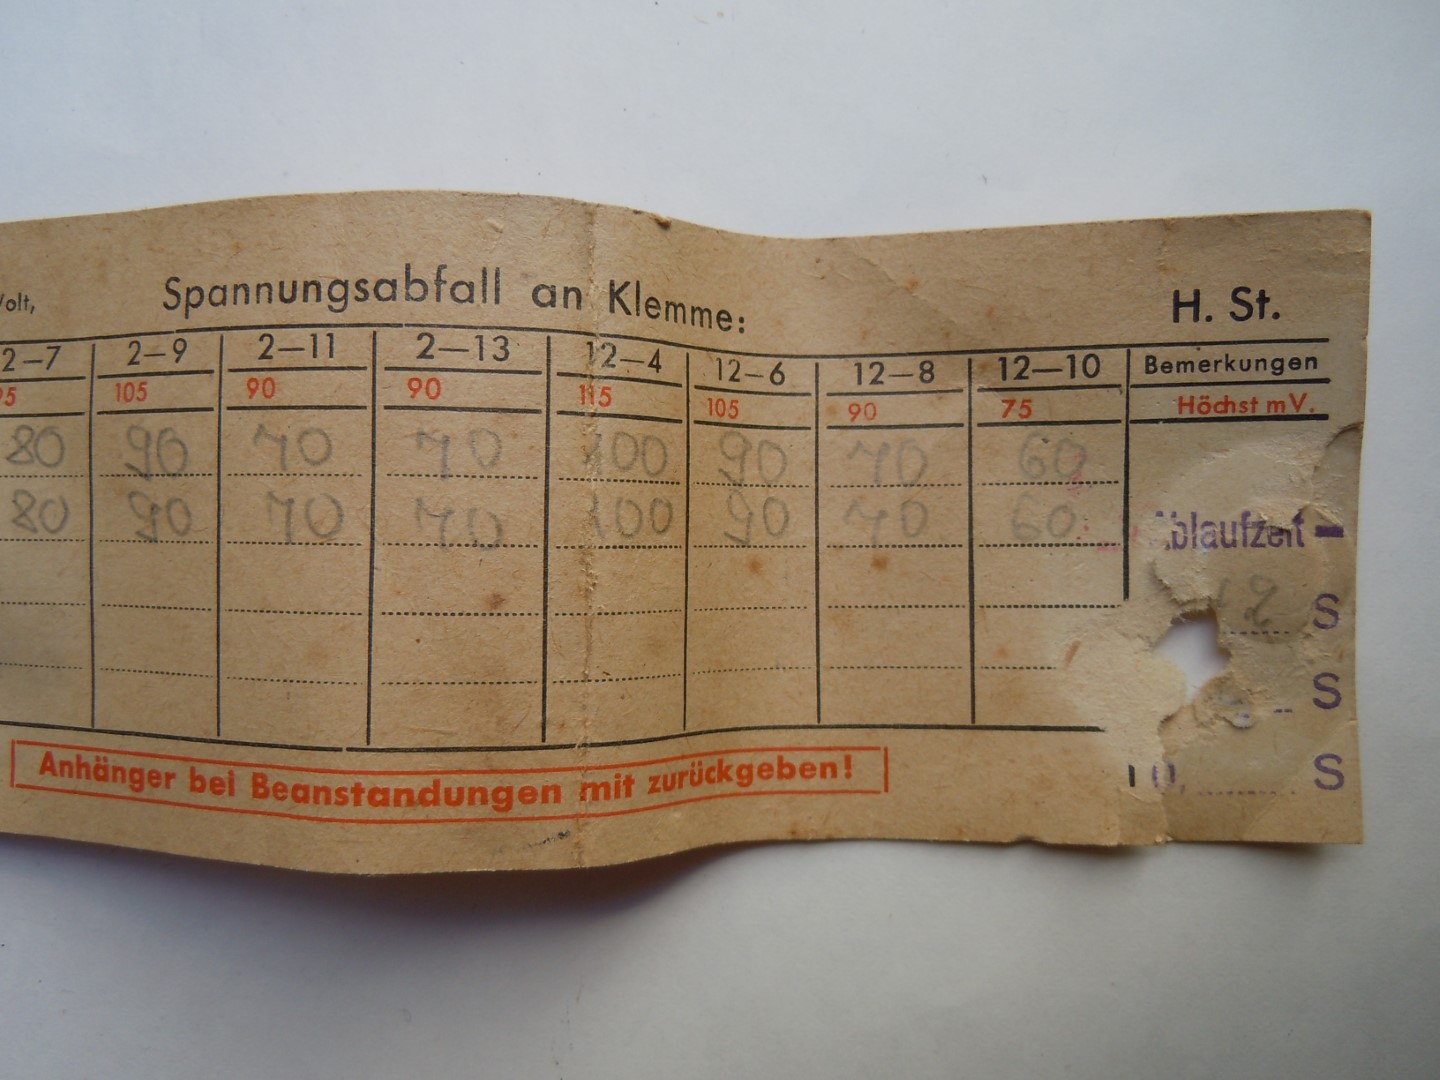 Volt, Spannungsabfall an Klemme: H. St.
2—7 2—9 2—11 2—13 12—4 12—6 12—8 12—10 Bemerkungen
95 105 90 90 115 105 90 75 Höchst mV.
80 90 70 70 100 90 70 60
80 90 70 70 100 90 70 60
Ablaufzeit -
12 S
S
0, S
Anhänger bei Beanstandungen mit zurückgeben!